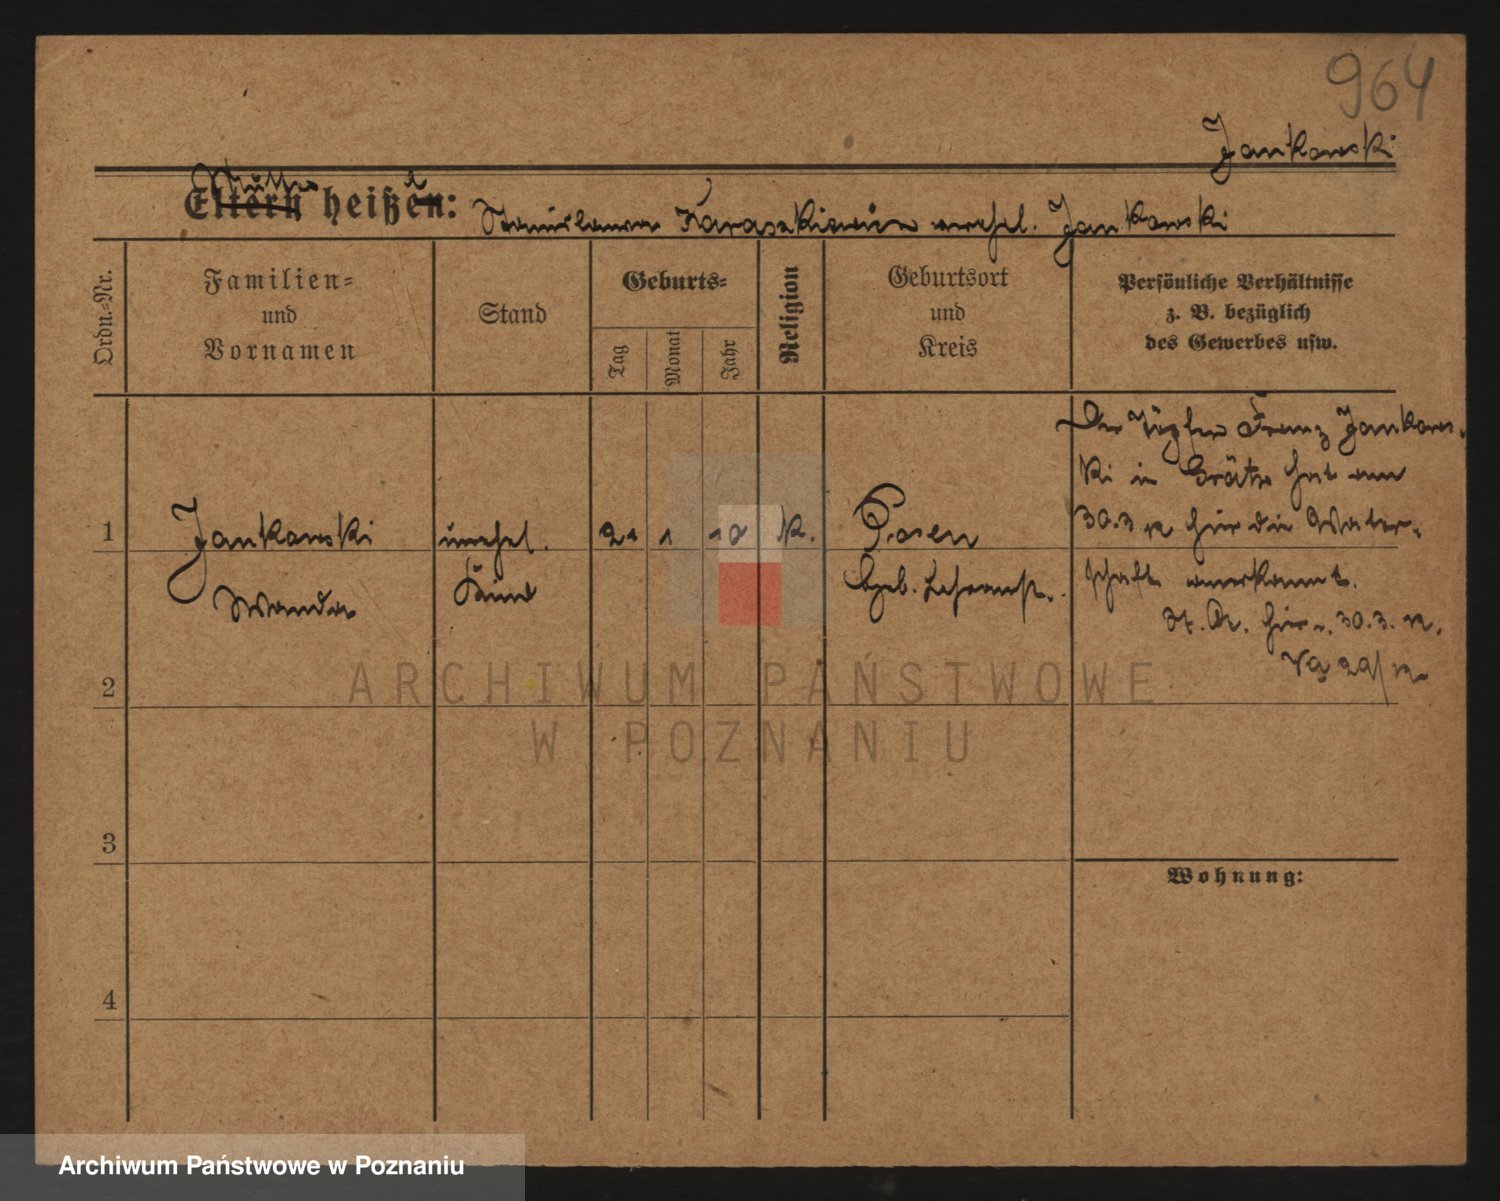 964
Jankowski
Mutter
Eltern heißen: Stanislawa Karaskiewicz verehel. Jankowski
Ordn.-Nr.
Familien-
und
Vornamen
Stand
Geburts-
Tag
Monat
Jahr
Religion
Geburtsort
und
Kreis
Persönliche Verhältnisse
z. B. bezüglich
des Gewerbes usw.
1
Jankowski
Wanda
unehel.
Kind
21
1
10
K.
Posen
Geb. Lehranst.
Der Töpfer Franz Jankows-
ki in Grätz hat am
30.3 12 hier die Vater-
schaft anerkannt.
St. A. hier v. 30.3.12.
2
3
4
Wohnung:
ARCHIWUM PAŃSTWOWE
W POZNANIU
Archiwum Państwowe w Poznaniu